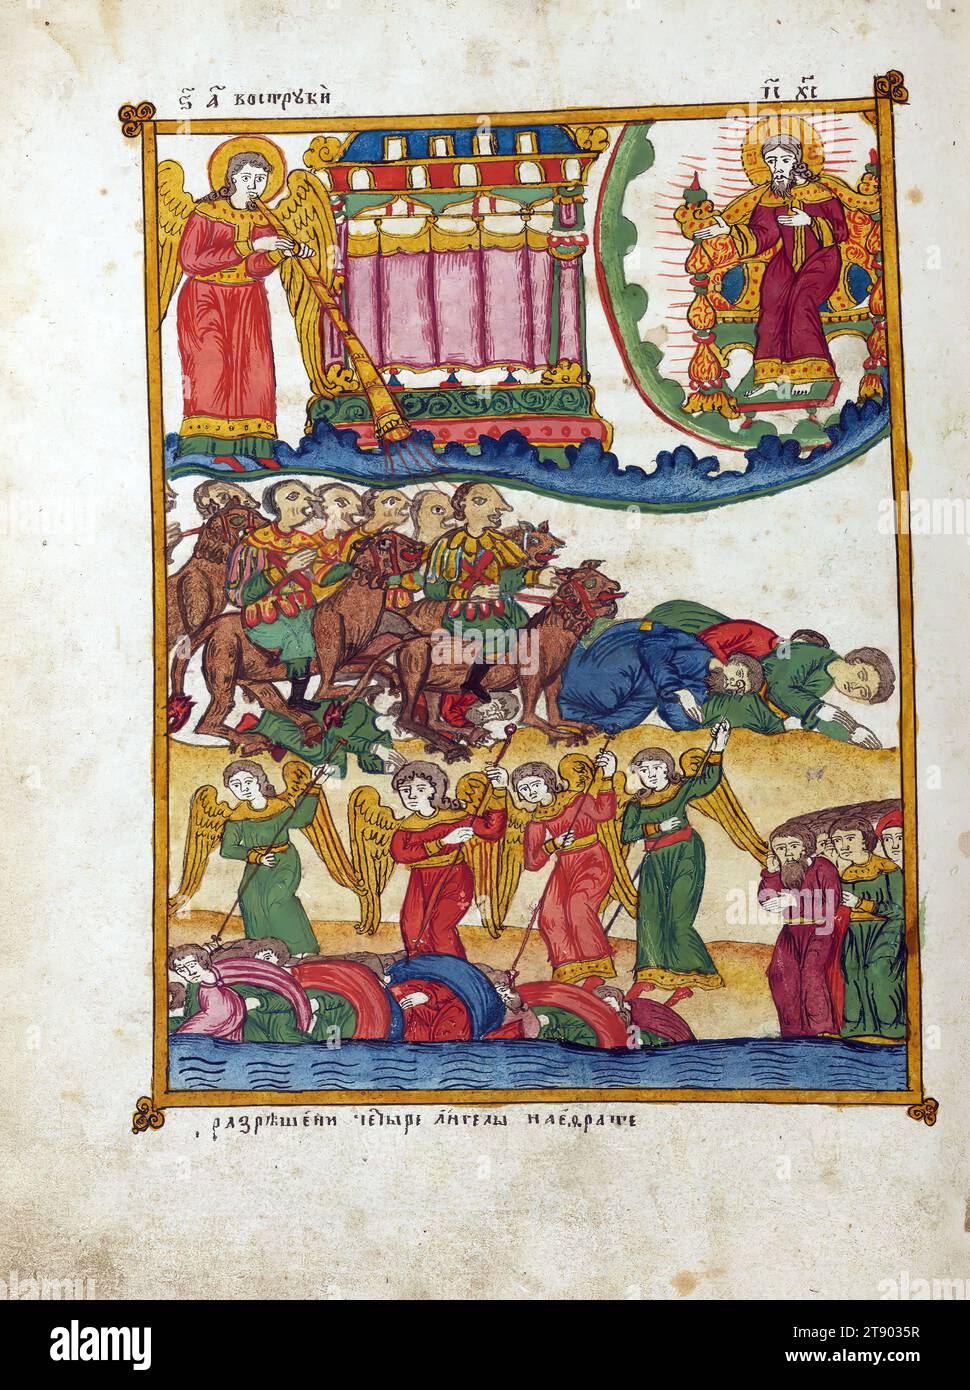 Ѕ҃ А҃ вострꙋби І҃С Х҃С
разрѣшени четыре а҆нгелы на еѳрате
alamy
Image ID: 2T9035R
www.alamy.com